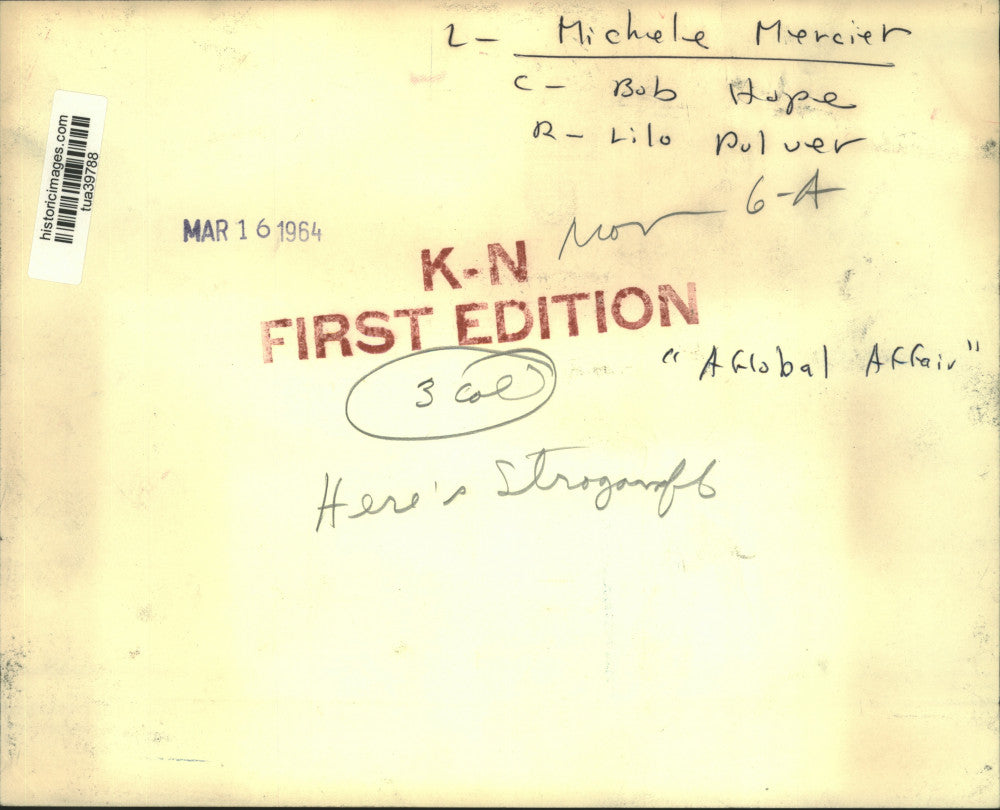 L- Michele Mercier
C- Bob Hope
R- Lilo Pulver
6-A
historicimages.com
tua39788
MAR 16 1964
K-N
FIRST EDITION
"A Global Affair"
3 Col
Here's Stroganoff